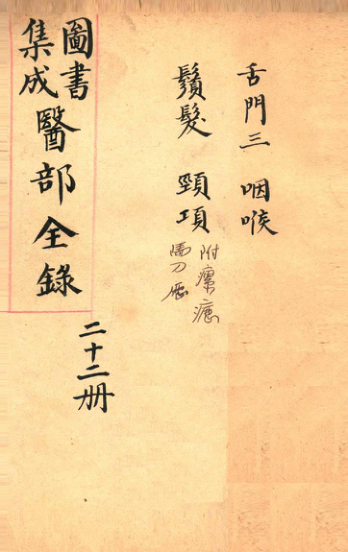 舌門三 咽喉
鬚髮 頸項
附瘰
馬刀
二十二册
圖書
集成
醫部全錄